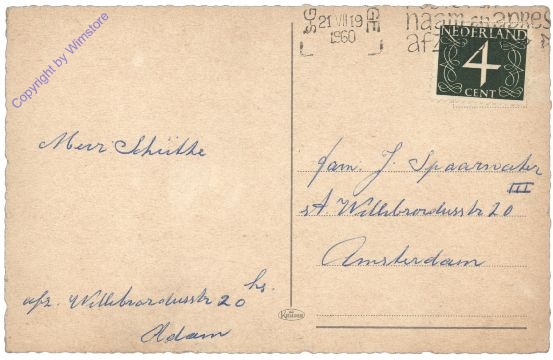 Copyright by Wimstore
21.VII 19
1960
naam en adres
afz
NEDERLAND
4
CENT
Mevr Schütte
afz. Willibrordusstr 20 hs.
Adam
Fam. J. Spaarwater
st Willibrordusstr 20 III
Amsterdam